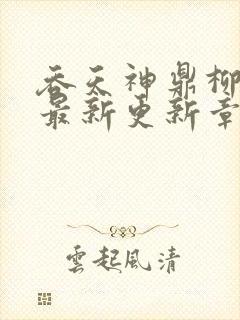 吞天神鼎柳
最新更新章
雲起風清